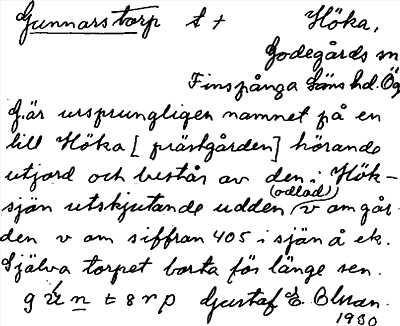 Gunnarstorp t + Höka,
Godegårds sn
Finspånga läns hd. Ög
G. är ursprungligen namnet på en
till Höka [prästgården] hörande
utjord och består av den i Hök-
sjön utskjutande udden (odlad) v om går-
den v om siffran 405 i sjön å ek.
Själva torpet borta för länge sen.
Gustaf E. Olsson.
1930